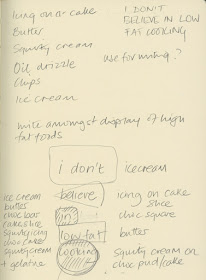 Icing on or cake
Butter
Squirty cream
Oil drizzle
Chips
Ice cream
I DON'T
BELIEVE IN LOW
FAT COOKING
use for writing?
write amongst display of high
fat foods
i don't
icecream
believe
icing on cake
slice
in
choc square
low fat
butter
cooking
squirty cream on
choc pud/cake
ice cream
butter
choc bar
cake slice
squirty icing
choc cake
squirty cream
+ gelatine